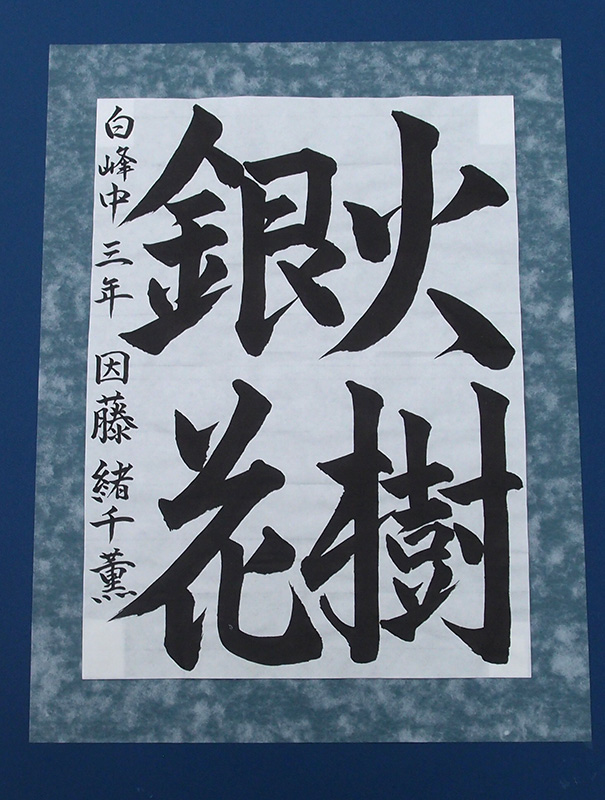 火樹
銀花
白峰中 三年 因藤 緒千薫